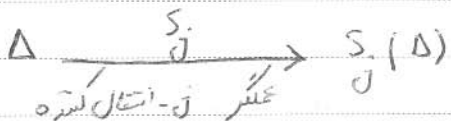 Δ ⟶ Sⱼ Sⱼ(Δ)
عملگر j-انتقال‌کننده